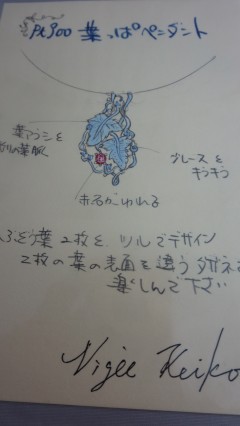 Pt900 葉っぱペンダント
葉アランを
ブレースを
キラキラ
赤石がゆれる
ぶどう葉2枚を、ツルでデザイン
2枚の葉の表面を違う
楽しんで下さい
Nigée Keiko